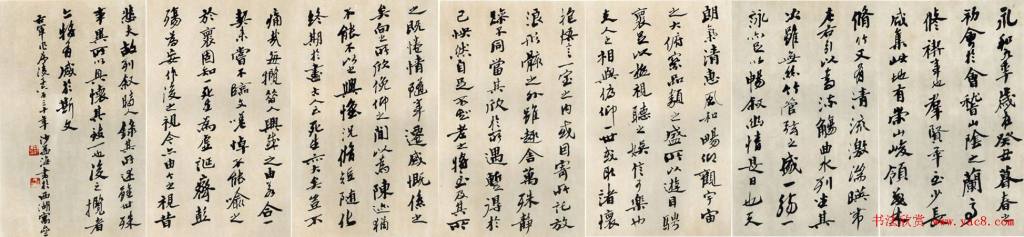 永和九年歲在癸丑暮春之
初會於會稽山陰之蘭亭
修禊事也羣賢畢至少長
咸集此地有崇山峻領茂林
脩竹又有清流激湍暎帶
左右引以爲流觴曲水列坐其
次雖無絲竹管弦之盛一觴一
詠亦足以暢敘幽情是日也天
朗氣清惠風和暢仰觀宇宙
之大俯察品類之盛所以遊目騁
懷足以極視聽之娛信可樂也
夫人之相與俯仰一世或取諸懷
抱悟言一室之內或因寄所託放
浪形骸之外雖趣舍萬殊靜
躁不同當其欣於所遇蹔得於
己怏然自足不知老之將至及其所
之既惓情隨事遷感慨係之
矣向之所欣俛仰之間以爲陳迹猶
不能不以之興懷況脩短隨化
終期於盡古人云死生亦大矣豈不
痛哉每攬昔人興感之由若合
一契未嘗不臨文嗟悼不能喻之
於懷固知一死生爲虛誕齊彭
殤爲妄作後之視今亦由今之視昔
悲夫故列敘時人錄其所述雖世殊
事異所以興懷其致一也後之攬者
亦將有感於斯文
沙孟海書於西湖寓
书法欣赏 www.yac8.com